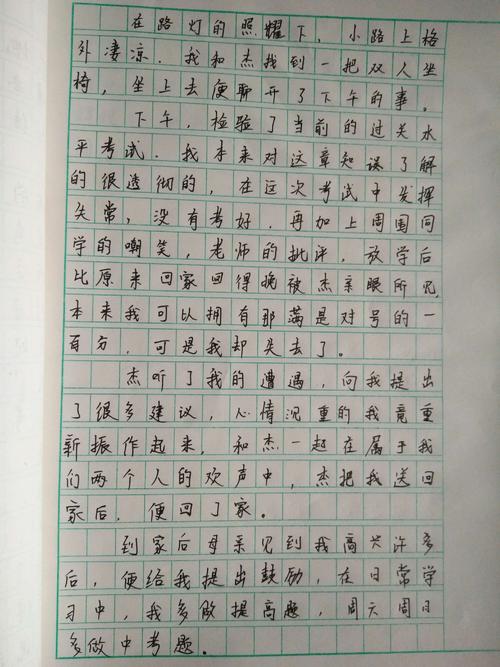 在路灯的照耀下，小路上格
外凄凉．我和杰找到一把双人坐
椅，坐上去便聊开了下午的事。
下午，检验了当前的过关水
平考试．我本来对这章知识了解
的很透彻的，在这次考试中发挥
失常，没有考好．再加上周围同
学的嘲笑，老师的批评，放学后
比原来回家回得晚被杰亲眼所见，
本来我可以拥有那满是对号的一
百分，可是我却失去了。
杰听了我的遭遇，向我提出
了很多建议，心情沉重的我竟重
新振作起来，和杰一起在属于我
们两个人的欢声中，杰把我送回
家后．便回了家。
到家后母亲见到我高兴许多
后，便给我提出鼓励，在日常学
习中，我多做提高题，周六周日
多做中考题。